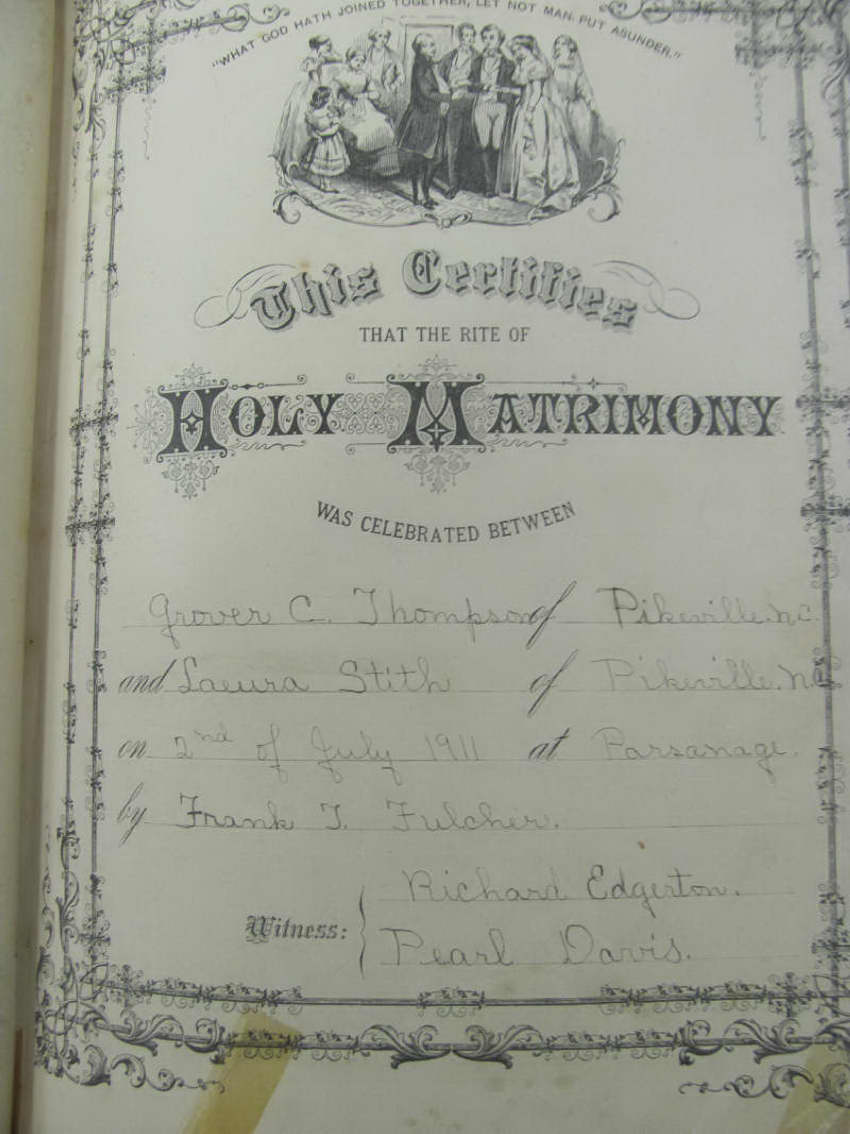 "WHAT GOD HATH JOINED TOGETHER, LET NOT MAN PUT ASUNDER."
This Certifies
THAT THE RITE OF
HOLY MATRIMONY
WAS CELEBRATED BETWEEN
Grover C. Thompson of Pikeville. N.C.
and Laura Stith of Pikeville. N.C.
on 2nd of July 1911 at Parsanage.
by Frank T. Fulcher.
Richard Edgerton.
Witness:
Pearl Davis.